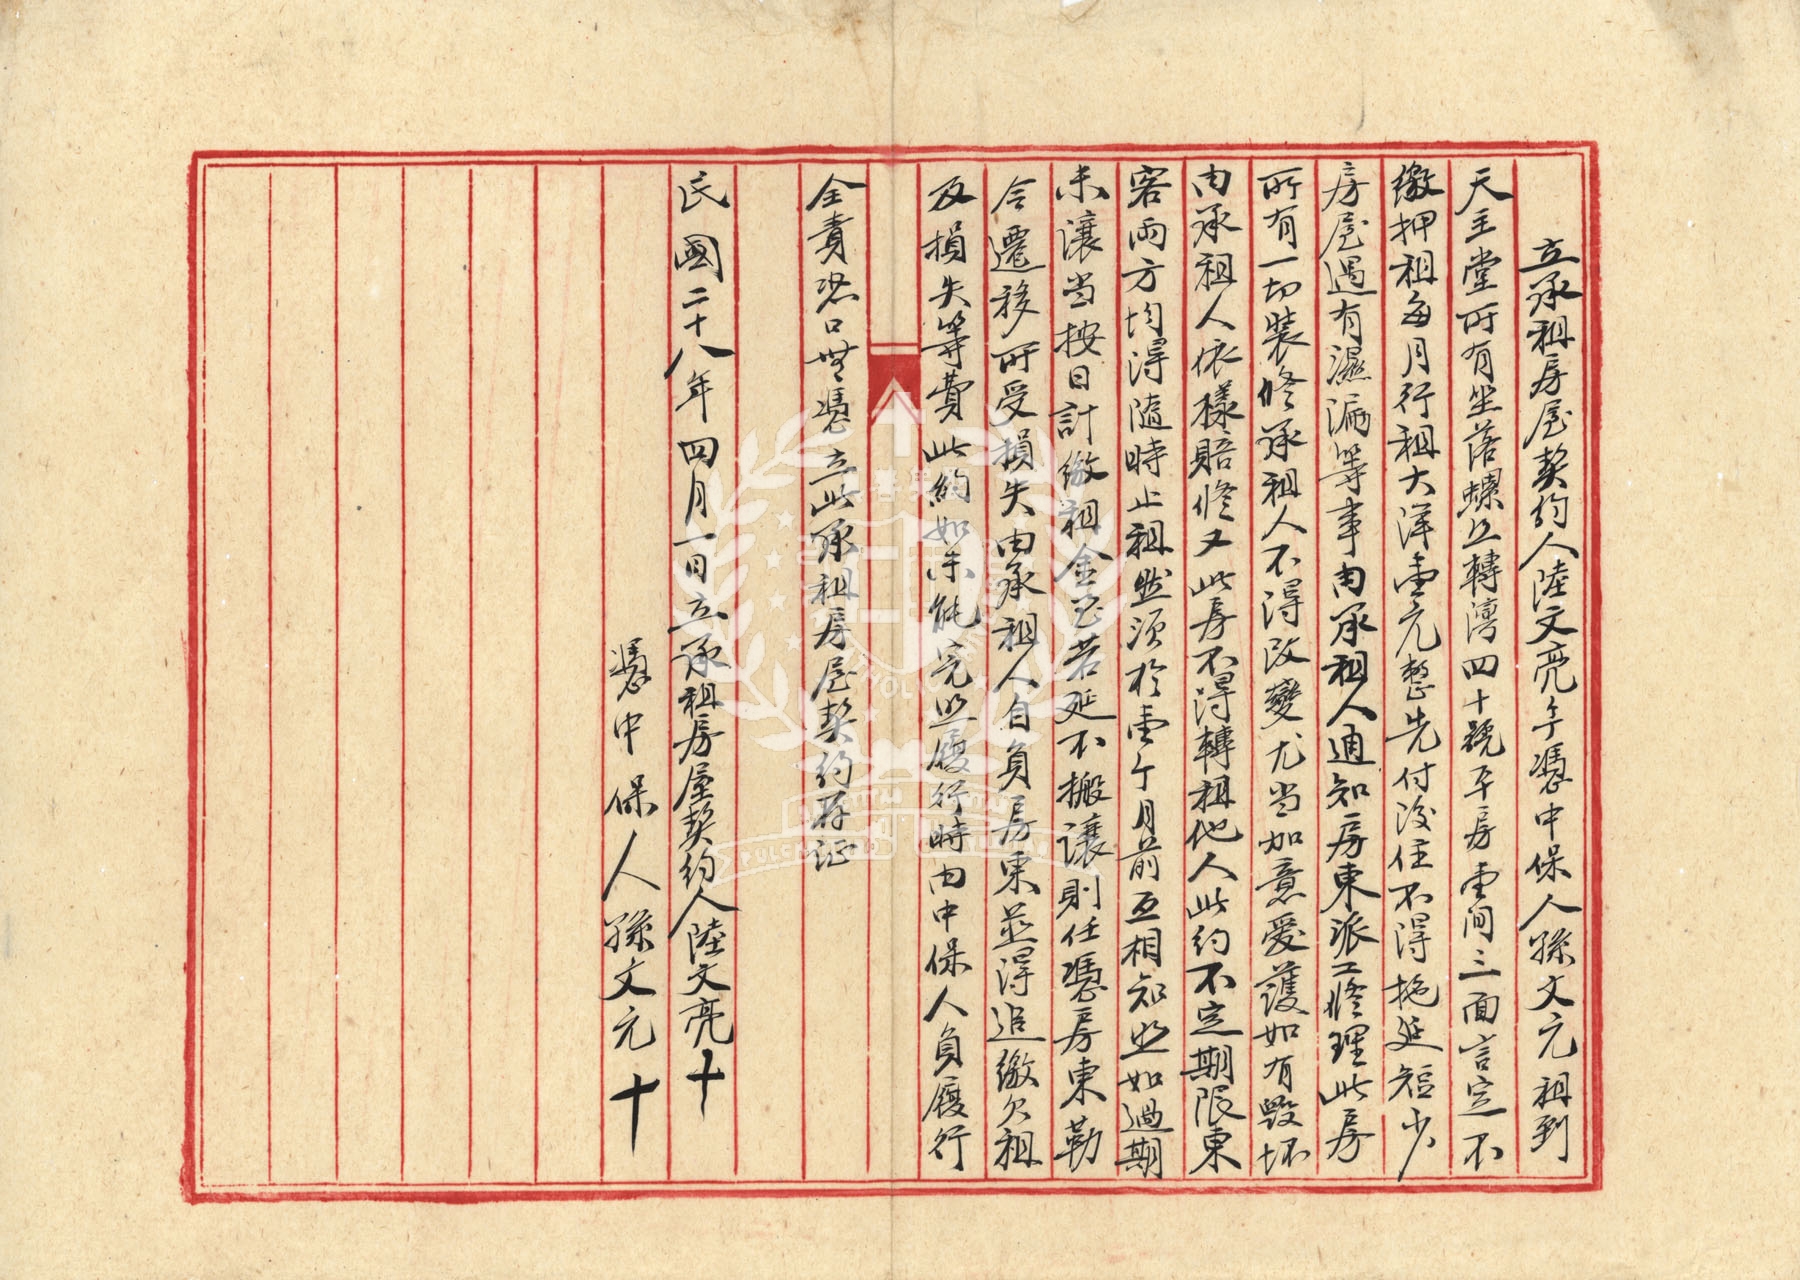 立承租房屋契約人陸文亮今憑中保人孫文元租到
天主堂所有坐落螺丘轉灣四十號平房壹间三面言定不
繳押租每月行租大洋壹元整先付後住不得拖延短少
房屋遇有濕漏等事由承租人通知房東派工修理此房
所有一切裝修承租人不得改變尤当加意愛護如有毀坏
由承租人依樣賠修又此房不得轉租他人此约不定期限東
客両方均得隨時止租然须於壹个月前互相知照如過期
未讓当按日計繳租金至若延不搬讓則任憑房東勒
令遷移所受損失由承租人自負房東並得追繳欠租
及損失等費此約如未能完照履行時由中保人負履行
全責恐口無憑立此承租房屋契约存证
民國二十八年四月一日立承租房屋契约人陸文亮十
憑中保人孫文元十